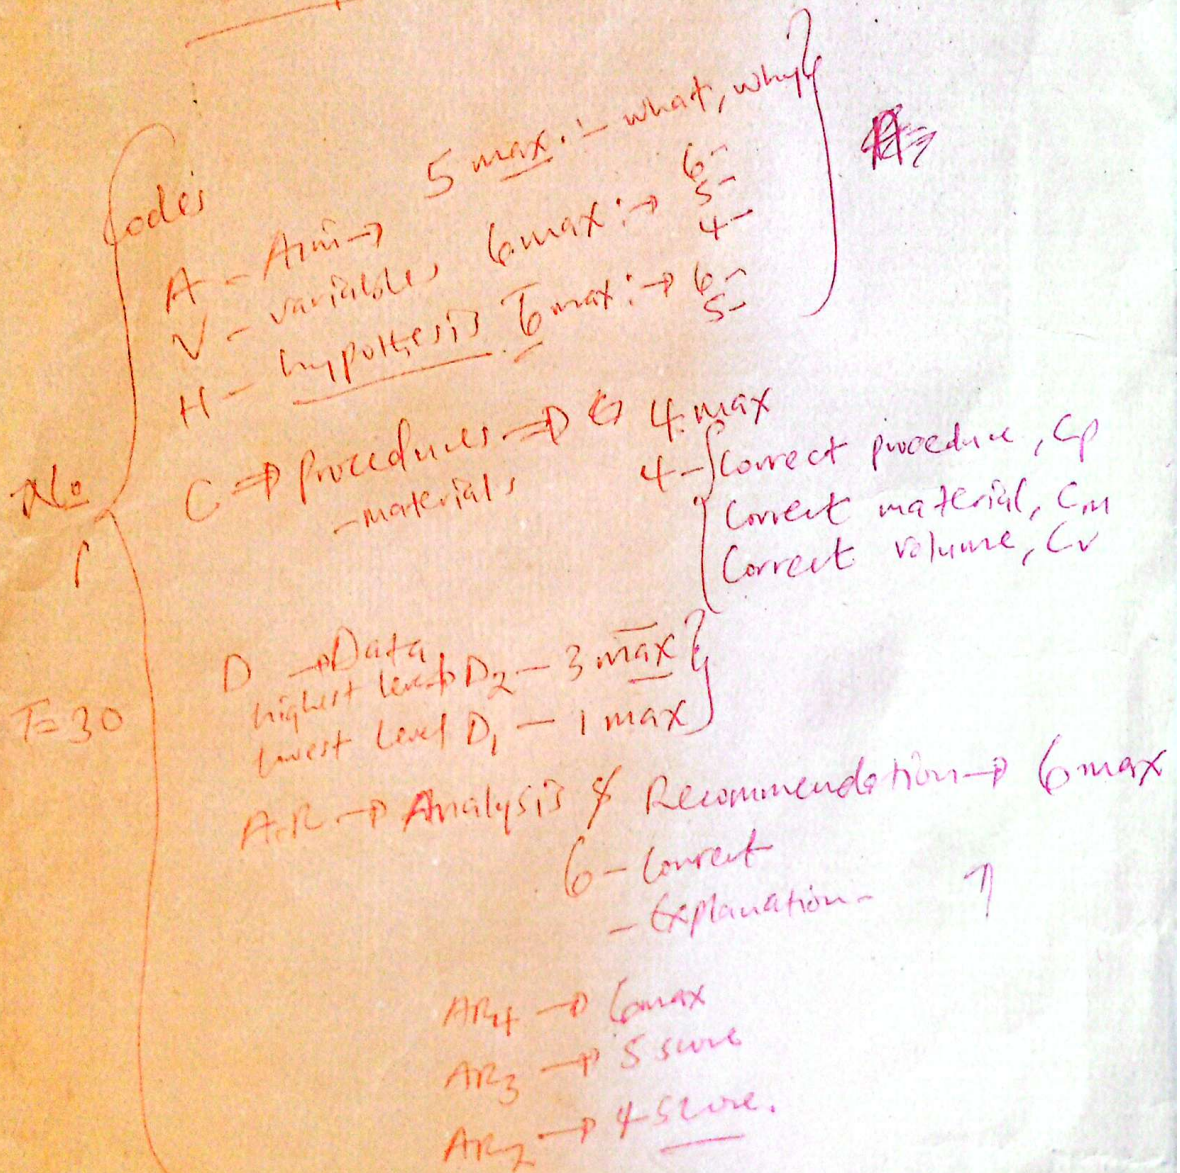 Codes
A - Aim → 5 max :- what, why
V - variables 6 max :→ 6-
5-
4-
H - hypothesis 6 max :→ 6-
5-
C ⇒ procedures ⇒ 4 max
- materials
4 - Correct procedure, Cp
Correct material, Cm
Correct volume, Cv
No
1
D → Data
highest level → D2 - 3 max
lowest level D1 - 1 max
T=30
A&R → Analysis & Recommendation → 6 max
6 - Correct
- Explanation - ↑
AR4 → 6 max
AR3 → 5 score
AR2 → 4 score.